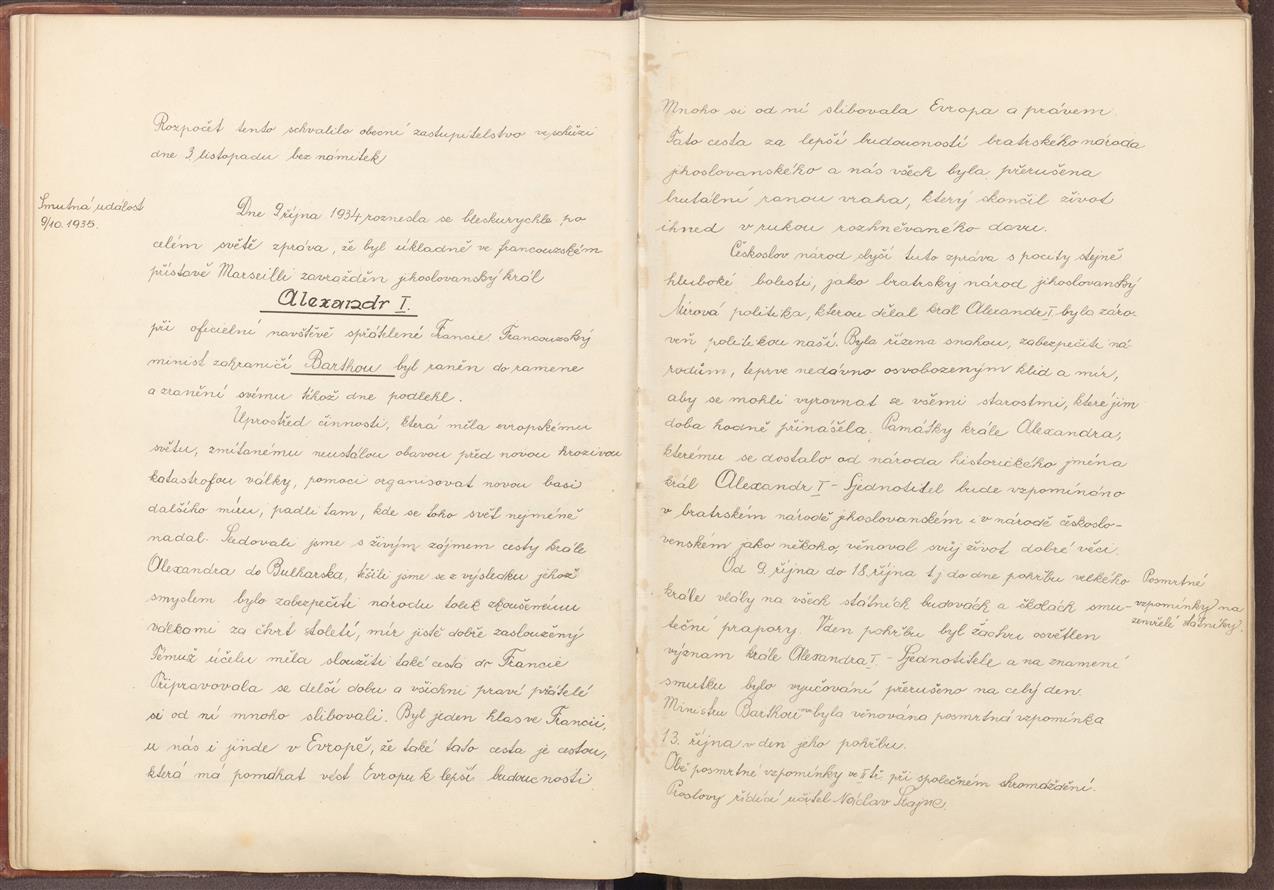 Rozpočet tento schválilo obecní zastupitelstvo ve schůzi
dne 3. listopadu bez námitek
Smutná událost
9/10. 1935.
Dne 9 října 1934 roznesla se bleskurychle po
celém světě zpráva, že byl úkladně ve francouzském
přístavě Marseilli zavražděn jihoslovanský král
Alexandr I.
při oficielní navštěvě spřátelené Francie. Francouzský
minist zahraničí Barthou byl raněn do ramene
a zranění svému téhož dne podlehl.
Uprostřed činnosti, která měla evropskému
světu, zmítanému neustálou obavou před novou hrozivou
katastrofou války, pomoci organisovat novou basi
dalšího míru, padli tam, kde se toho svět nejméně
nadál. Sledovali jsme s živým zájmem cesty krále
Alexandra do Bulharska, těšili jsme se z výsledku jehož
smyslem bylo zabezpečiti národu tolik zkoušenému
válkami za čtvrt století, mír jistě dobře zasloužený
Témuž účelu měla sloužiti také cesta do Francie
Připravovala se delší dobu a všichni praví přátelé
si od ní mnoho slibovali. Byl jeden hlas ve Francii,
u nás i jinde v Evropě, že také tato cesta je cestou,
která má pomáhat vést Evropu k lepší budoucnosti
Mnoho si od ní slibovala Evropa a právem.
Tato cesta za lepší budoucností bratrského národa
jihoslovanského a nás všech byla přerušena
brutální ranou vraha, který skončil život
ihned v rukou rozhněvaného davu.
Českoslov národ slyší tuto zprávu s pocity stejně
hluboké bolesti, jako bratrský národ jihoslovanský
Mírová politika, kterou dělal král Alexandr I. byla záro-
veň politikou naší. Byla řízena snahou, zabezpečiti ná
rodům, teprve nedávno osvobozeným klid a mír,
aby se mohli vyrovnat se všemi starostmi, které jim
doba hodně přinášela. Památky krále Alexandra,
kterému se dostalo od národa historického jména
král Alexandr I – Sjednotitel bude vzpomínáno
v bratrském národě jihoslovanském i v národě českoslo-
venském jako někoho, věnoval svůj život dobré věci.
Od 9. října do 18. října t j do dne pohřbu velkého
krále vlály na všech státních budovách a školách smu-
teční prapory. V den pohřbu byl žactvu osvětlen
význam krále Alexandra I – Sjednotitele a na znamení
smutku bylo vyučování přerušeno na celý den.
Posmrtné
vzpomínky na
zemřelé státníky.
Ministru Barthou byla věnována posmrtná vzpomínka
13. října v den jeho pohřbu.
Obě posmrtné vzpomínky ve II tř při společném shromáždění.
Proslovy řídící učitel Václav